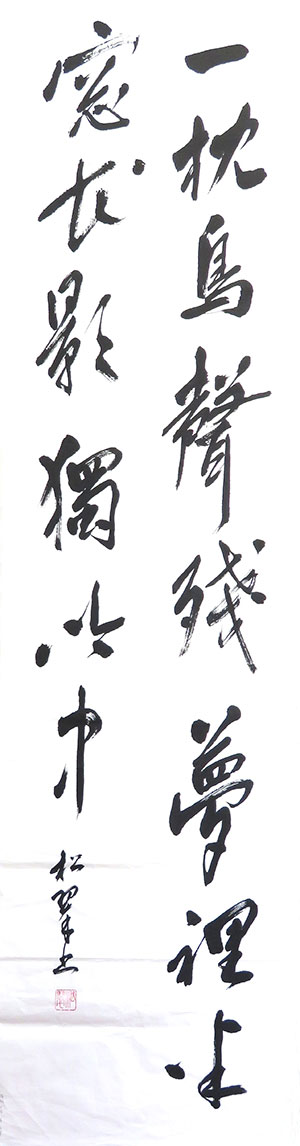 一枕鳥聲殘夢裡半
窓花影獨吟中
松翠书